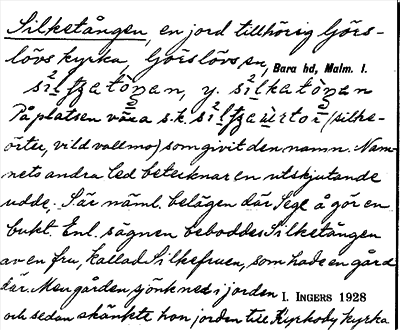 Silketången, en jord tillhörig Görs-
lövs kyrka, Görslövs sn, Bara hd, Malm. l.
På platsen växa s.k. (silke-
örter, vild vallmo) som givit den namn. Nam-
nets andra led betecknar en utskjutande
udde. Där näml. belägen där Sege å gör en
bukt. Enl. sägnen beboddes Silketången
av en fru, kallad Silkefruen, som hade en gård
där. Men gården sjönk ned i jorden I. INGERS 1928
och sedan skänkte hon jorden till Kyrkoby kyrka